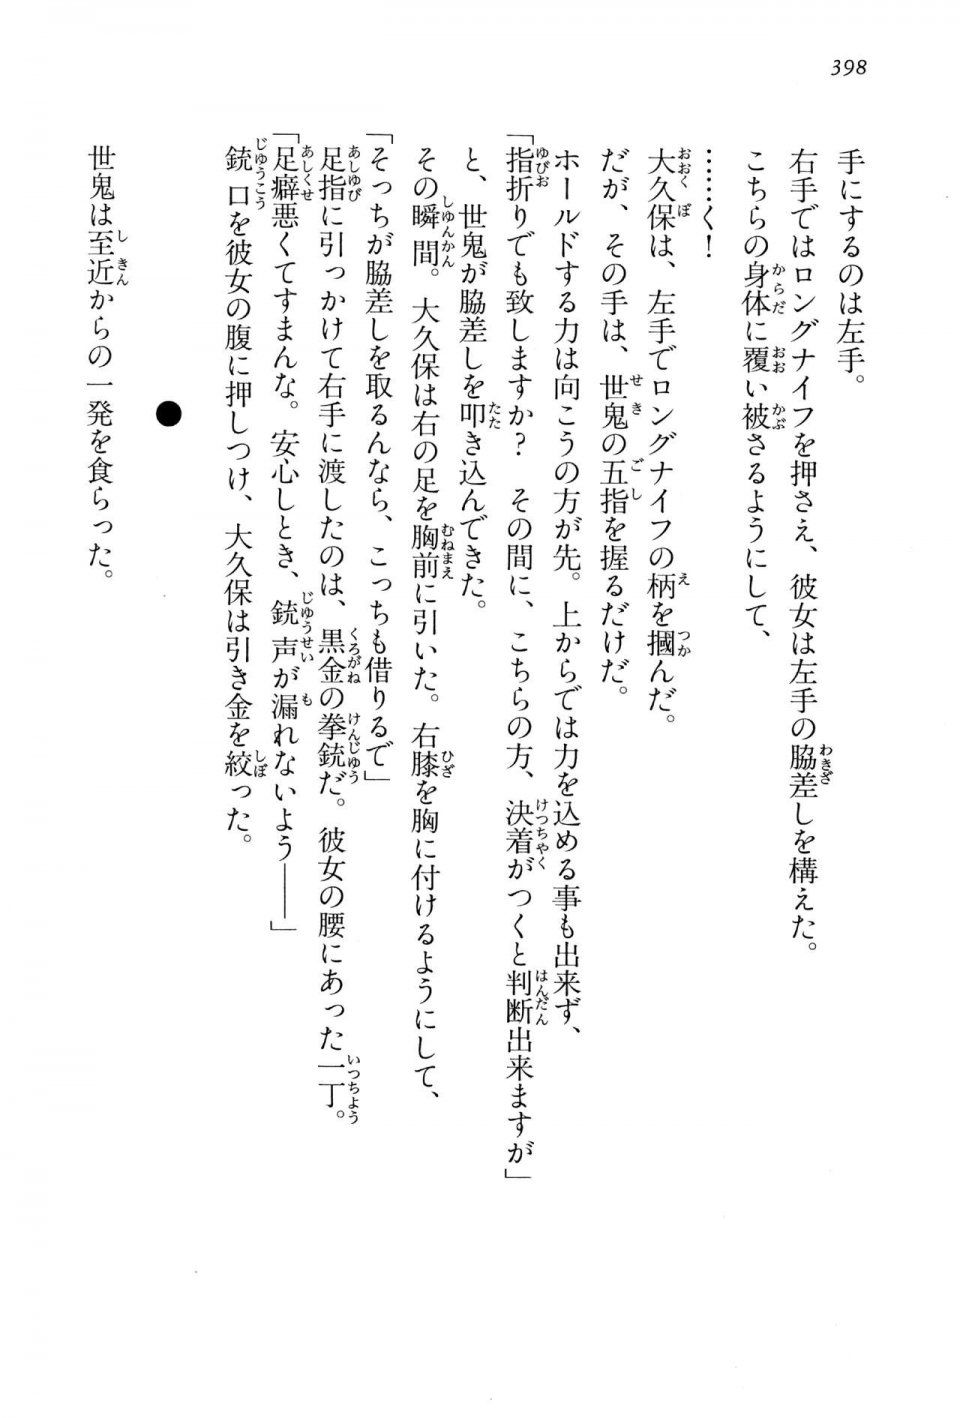 398
手にするのは左手。
右手ではロングナイフを押さえ、彼女は左手の脇差しを構えた。
こちらの身体に覆い被さるようにして、
……く！
大久保は、左手でロングナイフの柄を摑んだ。
だが、その手は、世鬼の五指を握るだけだ。
ホールドする力は向こうの方が先。上からでは力を込める事も出来ず、
「指折りでも致しますか？　その間に、こちらの方、決着がつくと判断出来ますが」
と、世鬼が脇差しを叩き込んできた。
その瞬間。大久保は右の足を胸前に引いた。右膝を胸に付けるようにして、
「そっちが脇差しを取るんなら、こっちも借りるで」
足指に引っかけて右手に渡したのは、黒金の拳銃だ。彼女の腰にあった一丁。
「足癖悪くてすまんな。安心しとき、銃声が漏れないよう――」
銃口を彼女の腹に押しつけ、大久保は引き金を絞った。
●
世鬼は至近からの一発を食らった。